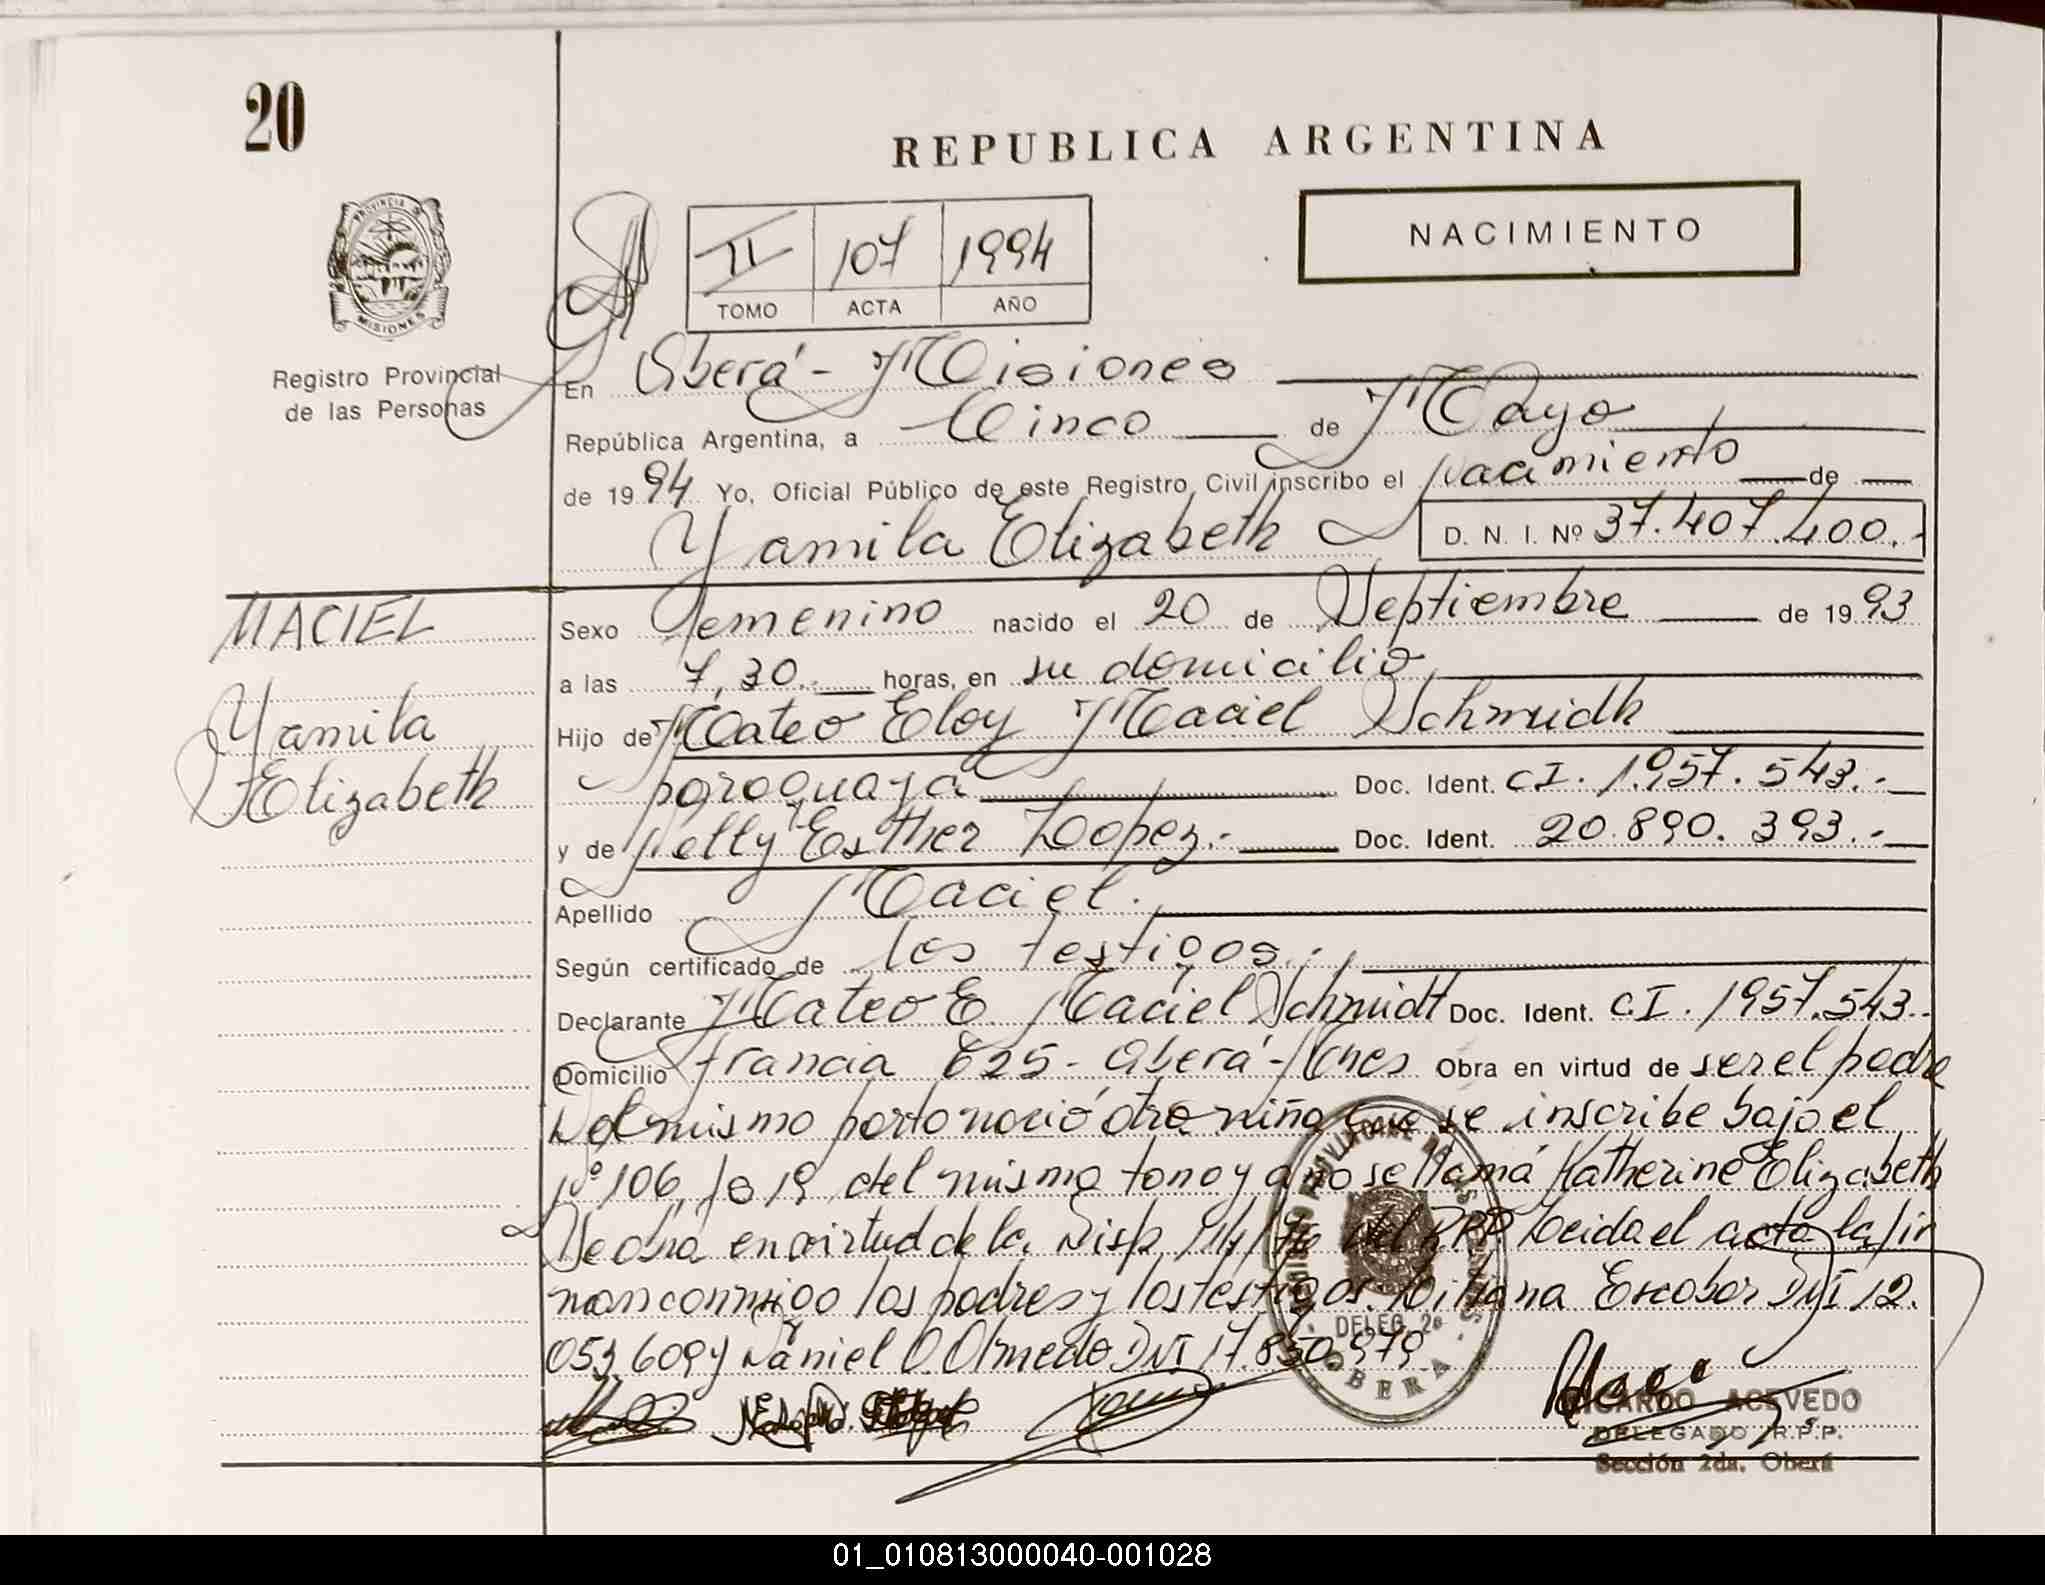 20
REPUBLICA ARGENTINA
NACIMIENTO
II 107 1994
TOMO ACTA AÑO
PROVINCIA DE
MISIONES
Registro Provincial
de las Personas
En Oberá - Misiones
República Argentina, a Cinco de Mayo
de 1994 Yo, Oficial Público de este Registro Civil inscribo el nacimiento de
Yamila Elizabeth D. N. I. Nº 37.407.400.-
MACIEL
Yamila
Elizabeth
Sexo Femenino nacido el 20 de Septiembre de 1993
a las 7,30.- horas, en su domicilio
Hijo de Mateo Eloy Maciel Schmidh
paraguaya Doc. Ident. CI. 1.957.543.-
y de Nelly Esther Lopez.- Doc. Ident. 20.890.393.-
Apellido Maciel.
Según certificado de los testigos.-
Declarante Mateo E. Maciel Schmidt Doc. Ident. C.I. 1957.543.-
Domicilio Francia 625 - Oberá - Mnes Obra en virtud de ser el padre
Del mismo parto nació otra niña que se inscribe bajo el
Nº 106, fo 19 del mismo tomo y año se llama Katherine Elizabeth
Se obra en virtud de la Disp. 114/76 del RPP Leida el acta la fir
man conmigo los padres y los testigos. Liliana Escobar DNI 12.
053.609 y Daniel O. Olmedo DNI 17.850.979
DELEG. 2a
OBERA
RICARDO ACEVEDO
DELEGADO R.P.P.
Sección 2da. Oberá
01_010813000040-001028